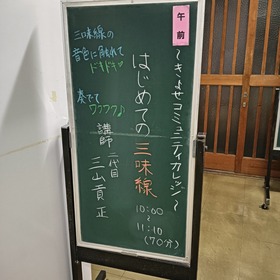 午前
～きよせコミュニティカレッジ～
はじめての三味線
10:00
～
11:10
(70分)
三味線の
音色に触れて
ドキドキ♡
奏でて
ワクワク♪
講師 二代目
三山貢正